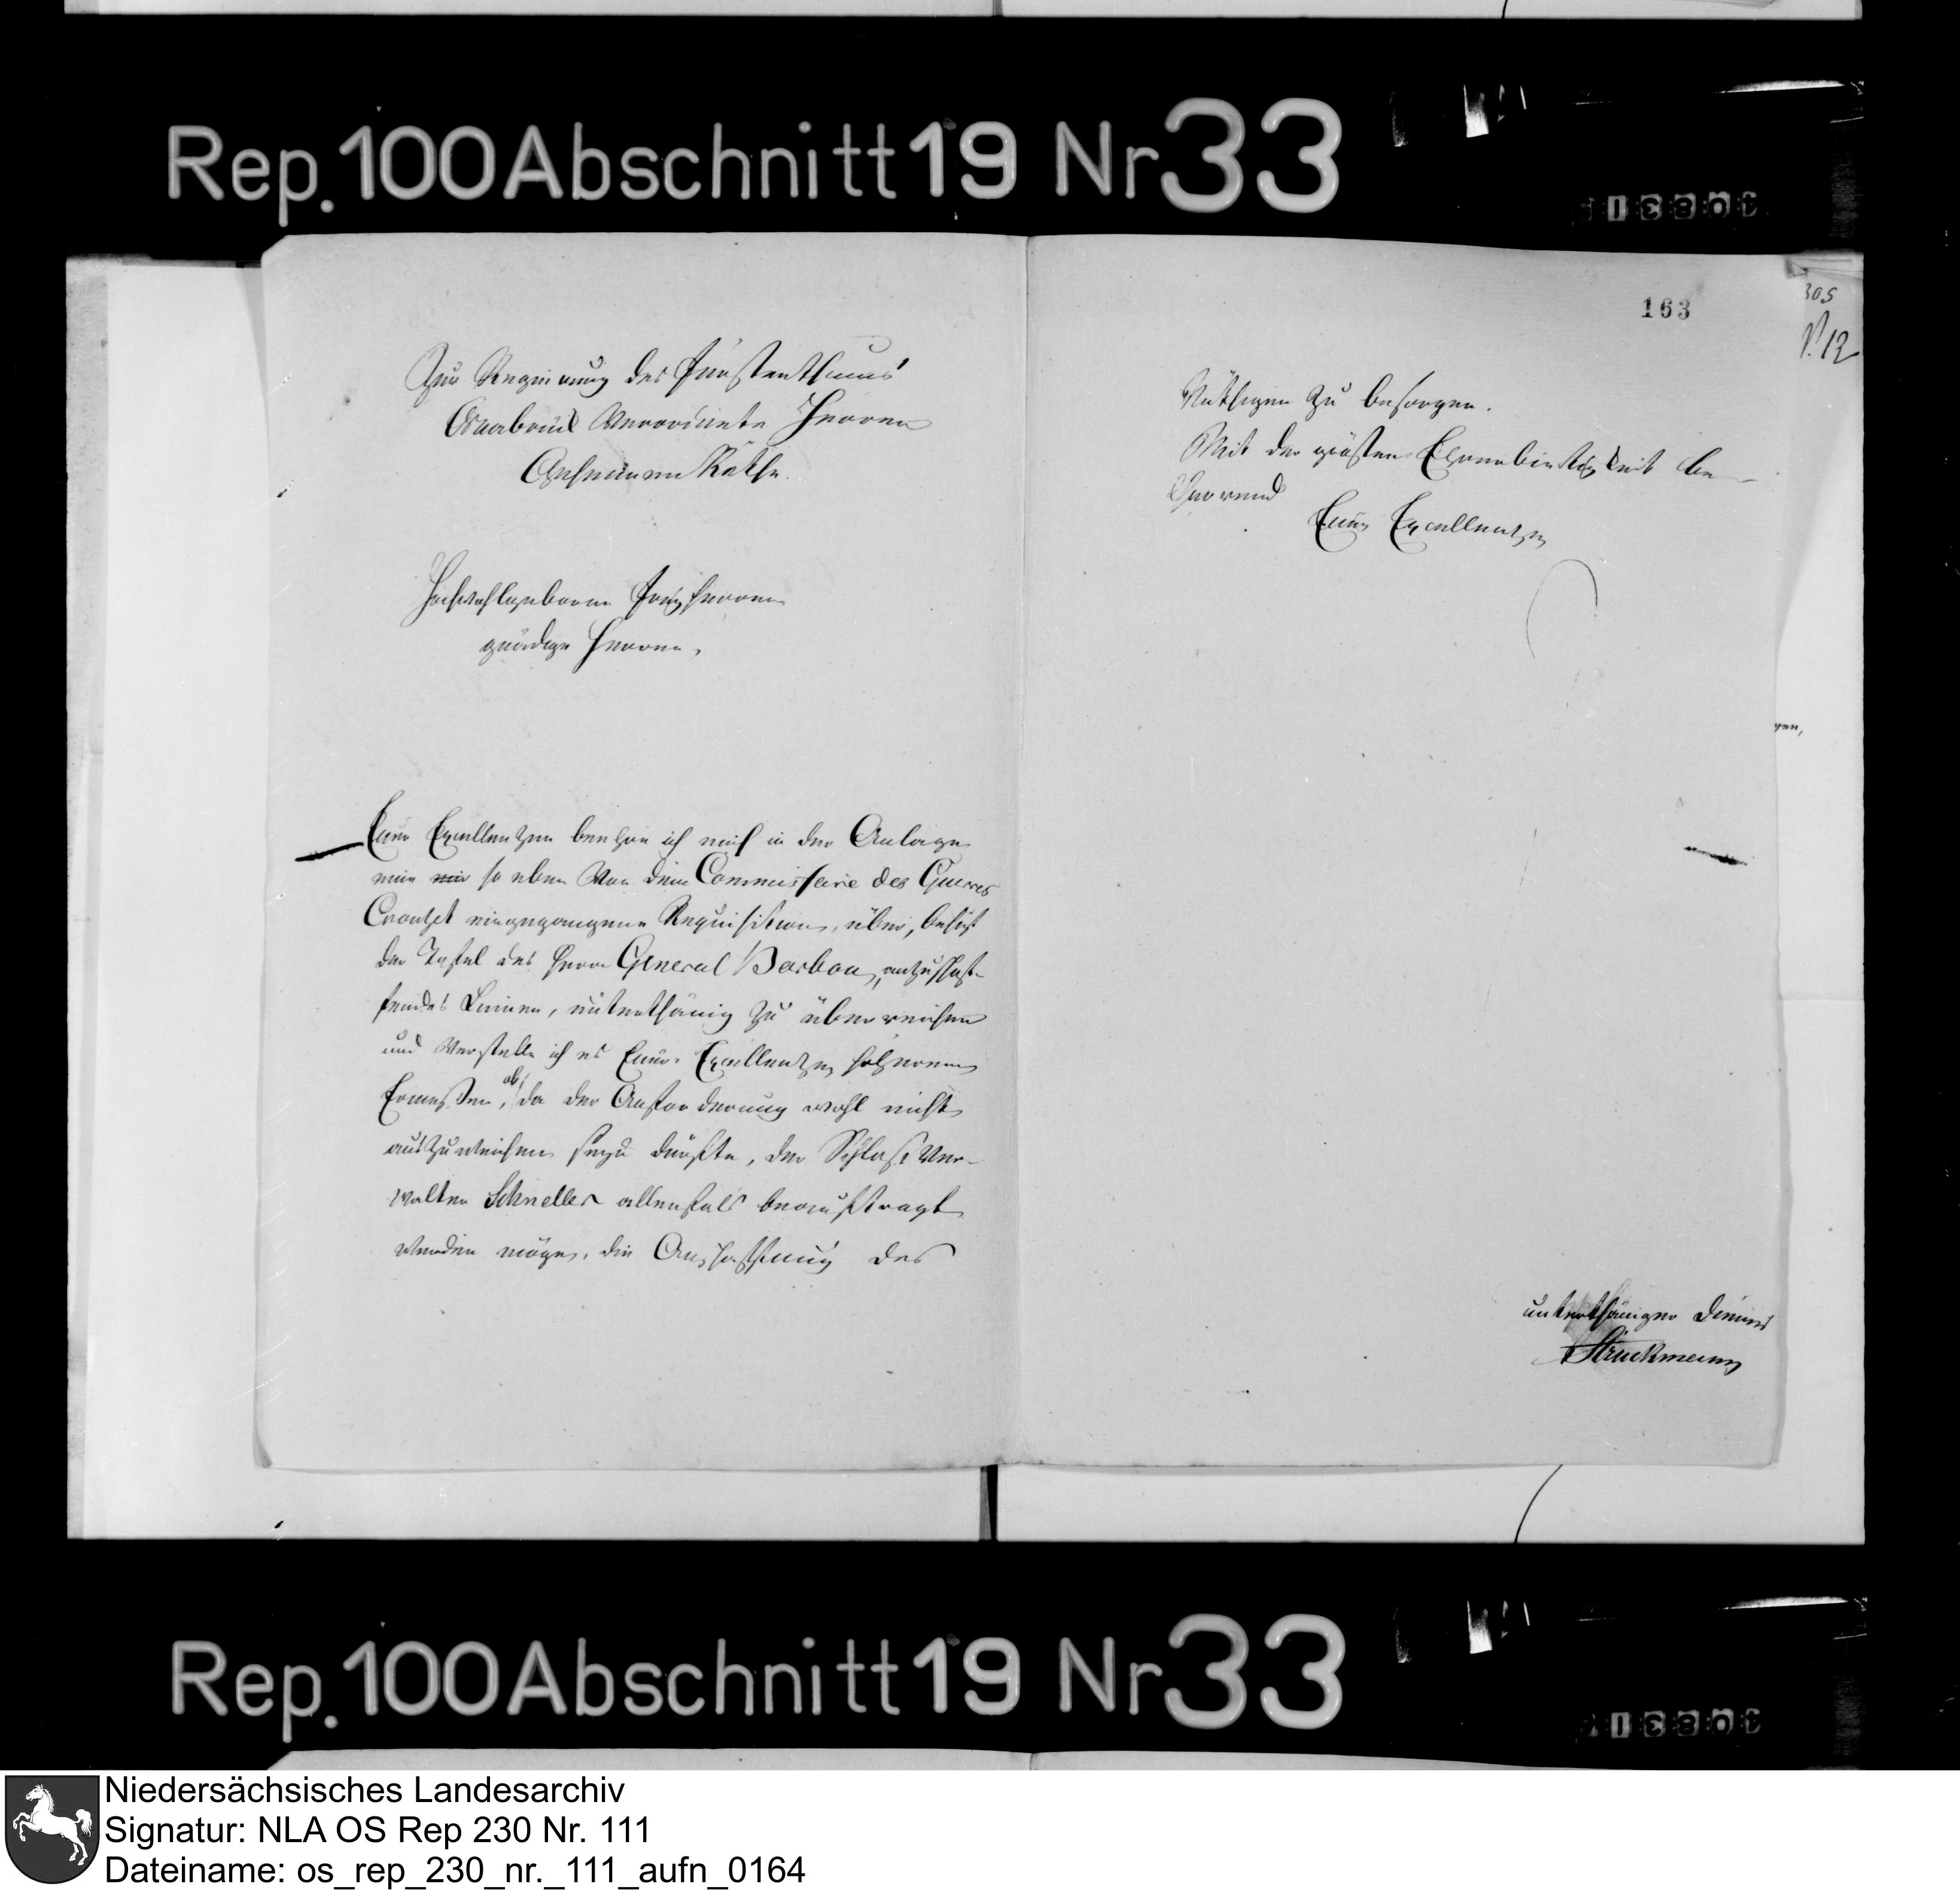 Rep. 100 Abschnitt 19 Nr 33
Zur Regierung des Fürstenthums
Osnabrück Verordnete Herren
Geheimen Räthe.
Hochwohlgeborne Freyherren
gnädige Herren,
Euer Excellenzen beehre ich mich in der Anlage
eine mir so eben von dem Commissaire des Guerres
Crouzet eingegangene Requisition, über, behuf
der Tafel des Herrn General Barbou, anzuschaf-
fendes Leinen, unterthänig zu überreichen
und verstelle ich es Euer Excellenzen höheren
Ermessen, ob, da der Anforderung wohl nicht
auszuweichen seyn dürfte, der Schloß Ver-
walter Schneller allenfals beauftragt
werden möge, die Anschaffung des
163
305
N. 12
Nöthigen zu besorgen.
Mit der größten Ehrerbietigkeit be-
harrend
Euer Excellenzen
unterthäniger Diener
Struckmann
Rep. 100 Abschnitt 19 Nr 33
Niedersächsisches Landesarchiv
Signatur: NLA OS Rep 230 Nr. 111
Dateiname: os_rep_230_nr._111_aufn_0164